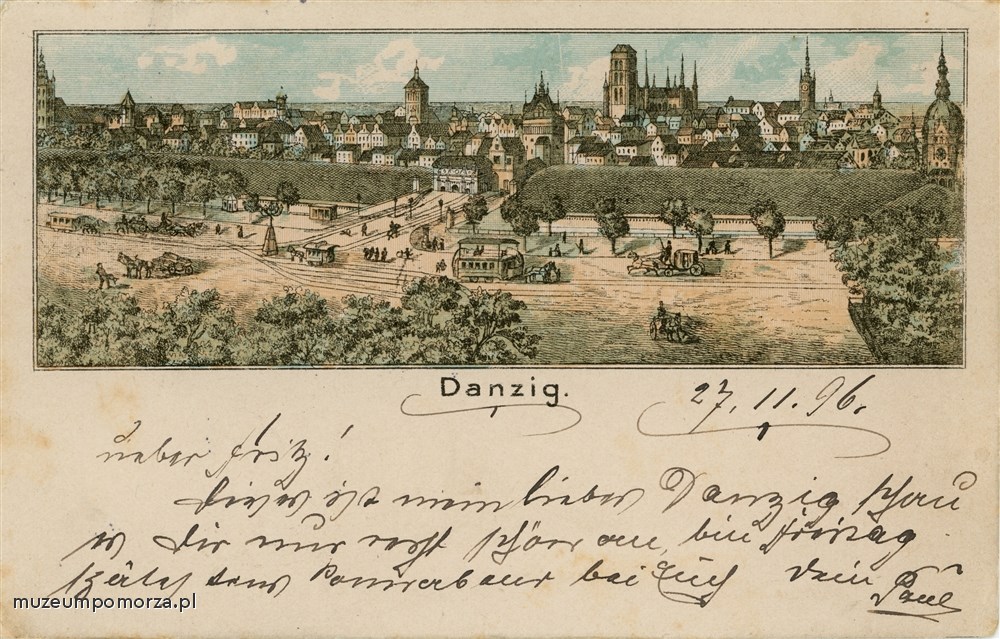 Danzig.
27. 11. 96.
Lieber Fritz!
Dieses ist mein liebes Danzig, schau
es Dir nur recht schön an, bin Freitag
bei Euch Dein Paul
muzeumpomorza.pl